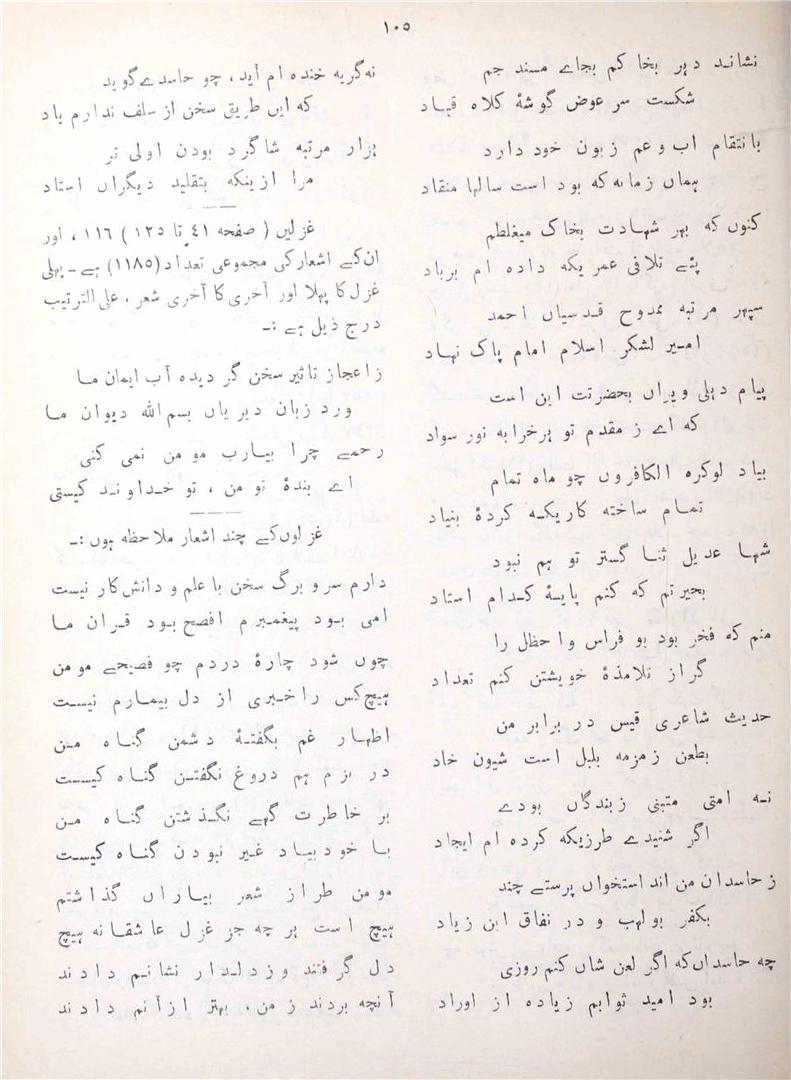 ۱۰۵
نشاند دہر بخاکم بجاے مسند جم
شکست سر عوض گوشۂ کلاہ قباد
بانتقام اب و عم زبون خود دارد
ہماں زمانہ کہ بود است سالہا منقاد
کنوں کہ بہر شہادت بخاک میغلطم
پئے تلافی عمریکہ دادہ ام برباد
سپہر مرتبہ ممدوح قدسیاں احمد
امیر لشکر اسلام امام پاک نہاد
پیام دہلی ویراں بحضرتت این است
کہ اے ز مقدم تو ہر خرابہ نور سواد
بیاد لوکرہ الکافروں چو ماہ تمام
تمام ساختہ کاریکہ کردۂ بنیاد
شہا عدیل ثنا گستر تو ہم نبود
بحیرتم کہ کنم پایۂ کدام استاد
منم کہ فخر بود بو فراس واخطل را
گر از تلامذۂ خویشتن کنم تعداد
حدیث شاعری قیس در برابر من
بطعن زمزمہ بلبل است شیون خاد
نہ امتی متبنی ز بندگاں بودے
اگر شنیدے طرزیکہ کردہ ام ایجاد
ز حاسدان من اند استخواں پرستے چند
بکفر بولہب و در نفاق ابن زیاد
چہ حاسداں کہ اگر لعن شاں کنم روزی
بود امید ثوابم زیادہ از اوراد
نہ گریہ خندہ ام آید، چو حاسدے گوید
کہ ایں طریق سخن از سلف ندارم یاد
ہزار مرتبہ شاگرد بودن اولی تر
مرا ازینکہ بتقلید دیگراں استاد
غزلیں (صفحہ ٤١ تا ۱۲۵) ۱۱٦ ، اور
ان کے اشعار کی مجموعی تعداد (۱۱۸۵) ہے ۔ پہلی
غزل کا پہلا اور آخری کا آخری شعر ، علی الترتیب
درج ذیل ہے :۔
ز اعجاز تاثیر سخن گردیدہ آب ایمان ما
ورد زبان دیریاں بسم اللہ دیوان ما
رحمے چرا بیارب مومن نمی کنی
اے بندۂ تو من ، تو خداوند کیستی
غزلوں کے چند اشعار ملاحظہ ہوں :۔
دارم سر و برگ سخن با علم و دانش کار نیست
امی بود پیغمبرم افصح بود قرآن ما
چوں شود چارۂ دردم چو فصیحے مومن
ہیچ کس را خبری از دل بیمارم نیست
اظہار غم بگفتۂ دشمن گناہ من
در بزم ہم دروغ نگفتن گناہ کیست
بر خاطرت گہے نگذشتن گناہ من
با خود بیاد غیر نبودن گناہ کیست
مومن طراز شعر بیاراں گذاشتم
ہیچ است ہر چہ جز غزل عاشقانہ ہیچ
دل گرفتند وز دلدار نشانم دادند
آنچہ بردند ز من، بہتر ازآنم دادند